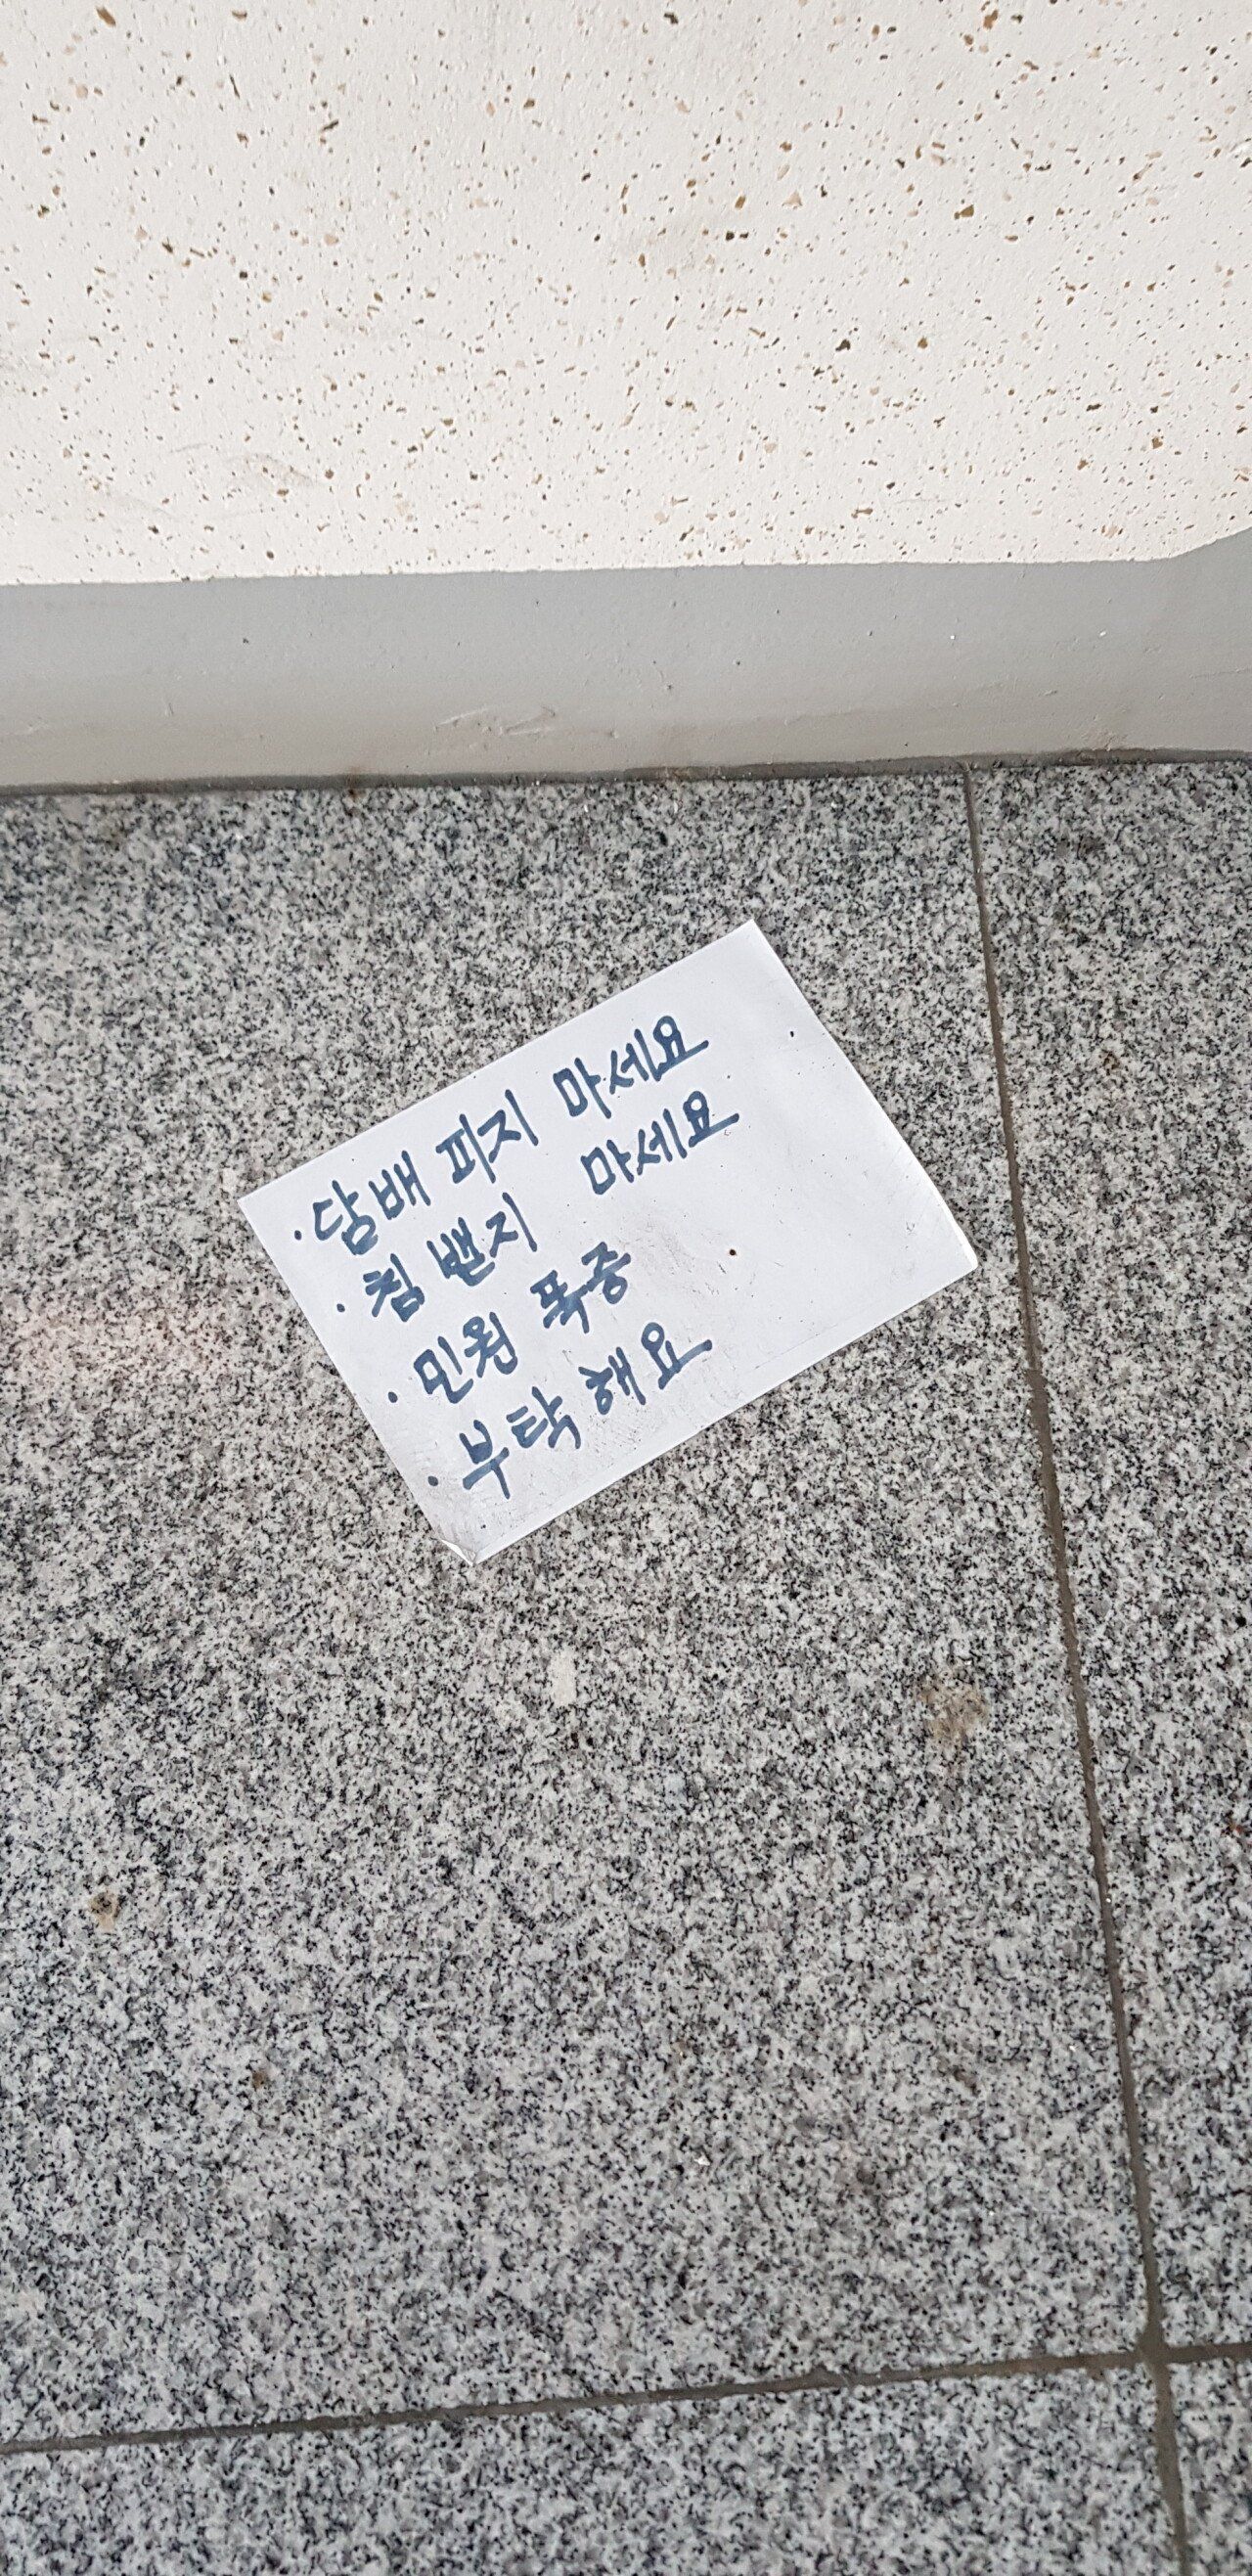 · 담배 피지 마세요
· 침 뱉지 마세요
· 민원 폭증
· 부탁해요